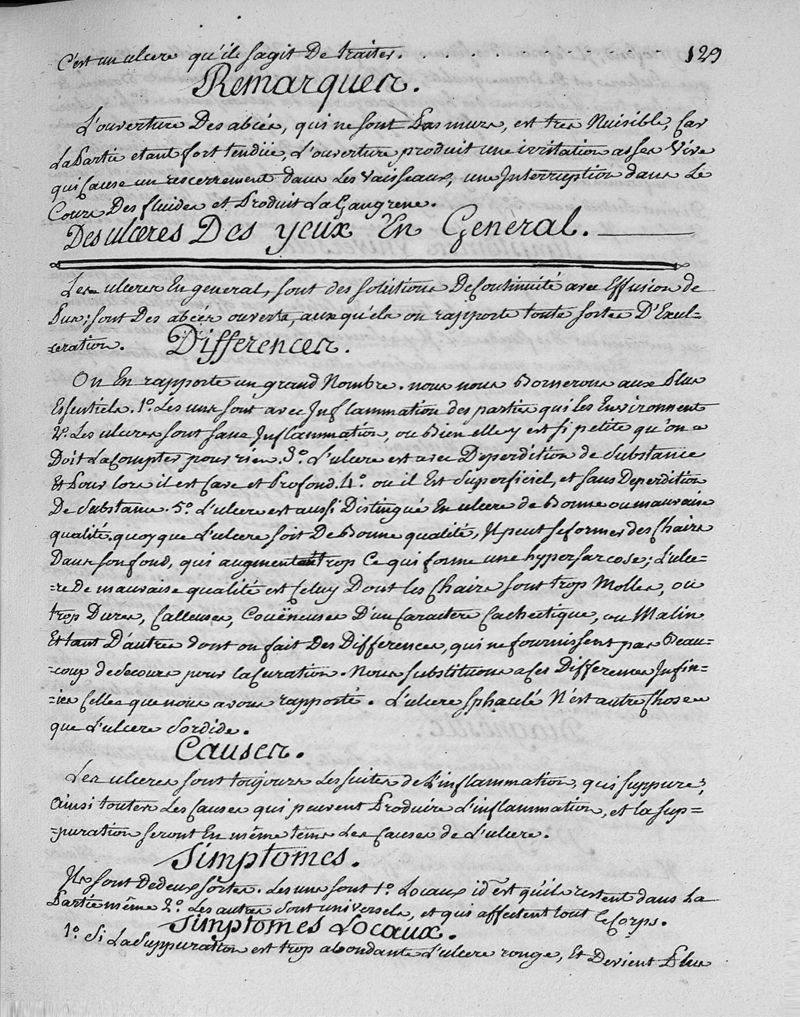 C'est un ulcere qu'il s'agit De traiter. . . . . . . . . . 129
Remarques.
L'ouverture Des abcés, qui ne sont Pas murs, est tres Nuisible, Car
La Partie etant fort tendüe, L'ouverture produit une irritation asses Vive
qui Cause un rescerrement Dans Les Vaisseaux, une Interruption dans Le
Cours Des fluides et Produit La Gangrene.
Des ulceres Des yeux En General.
Les ulceres En general, sont des solutions De Continuité avec Effusion de
Pus; sont Des abcés ouverts, aux quels on rapporte toute sortes D'Exul-
ceration. Differences.
On En rapporte un grand Nombre. nous nous Bornerons aux Plus
Essentiels. 1º. Les uns sont avec Inflammation des parties qui les Environnent
2º. Les ulceres sont sans Inflammation, ou Bien elle y est si petite qu'on a
Doit La Compter pour rien. 3º. L'ulcere est avec Deperdition de Substance
Et Pour lors il est Cave et Profond. 4º. ou il Est Superficiel, et sans Deperdition
De Substance. 5º. L'ulcere est aussi Distingué En ulcere de Bonne ou mauvaise
qualité. quoy que L'ulcere soit De Bonne qualité, Il peut se former des Chairs
Dans son fond, qui augmentent trop Ce qui forme une hypersarcose; L'ulce-
-re De mauvaise qualité est Celuy Dont les Chairs sont trop Molles, ou
trop Dures, Calleuses, Couëneuses D'un Caractere Cachectique, ou Malin
Et tant D'autres dont on fait Des Differences, qui ne fournissent pas Beau-
-coup de Secours pour la Curation. Nous Substituons a Ces Differences Infin-
-ies Celles que nous avons rapporté. L'ulcere Sphacelé N'est autre Chose
que L'ulcere Sordide.
Causes.
Les ulceres sont toujours Les suites de L'inflammation, qui suppure;
ainsi toutes Les Causes qui peuvent Produire L'inflammation, et la sup-
-puration seront En même tems Les Causes de L'ulcere.
Simptomes.
Ils sont De deux sortes. Les uns sont 1º. Locaux id est qu'ils restent dans La
Partie même 2º. Les autres sont universels, et qui affectent tout le Corps.
Simptomes Locaux.
1º. Si La Suppuration est trop abondante L'ulcere rouge, Et Devient Plus